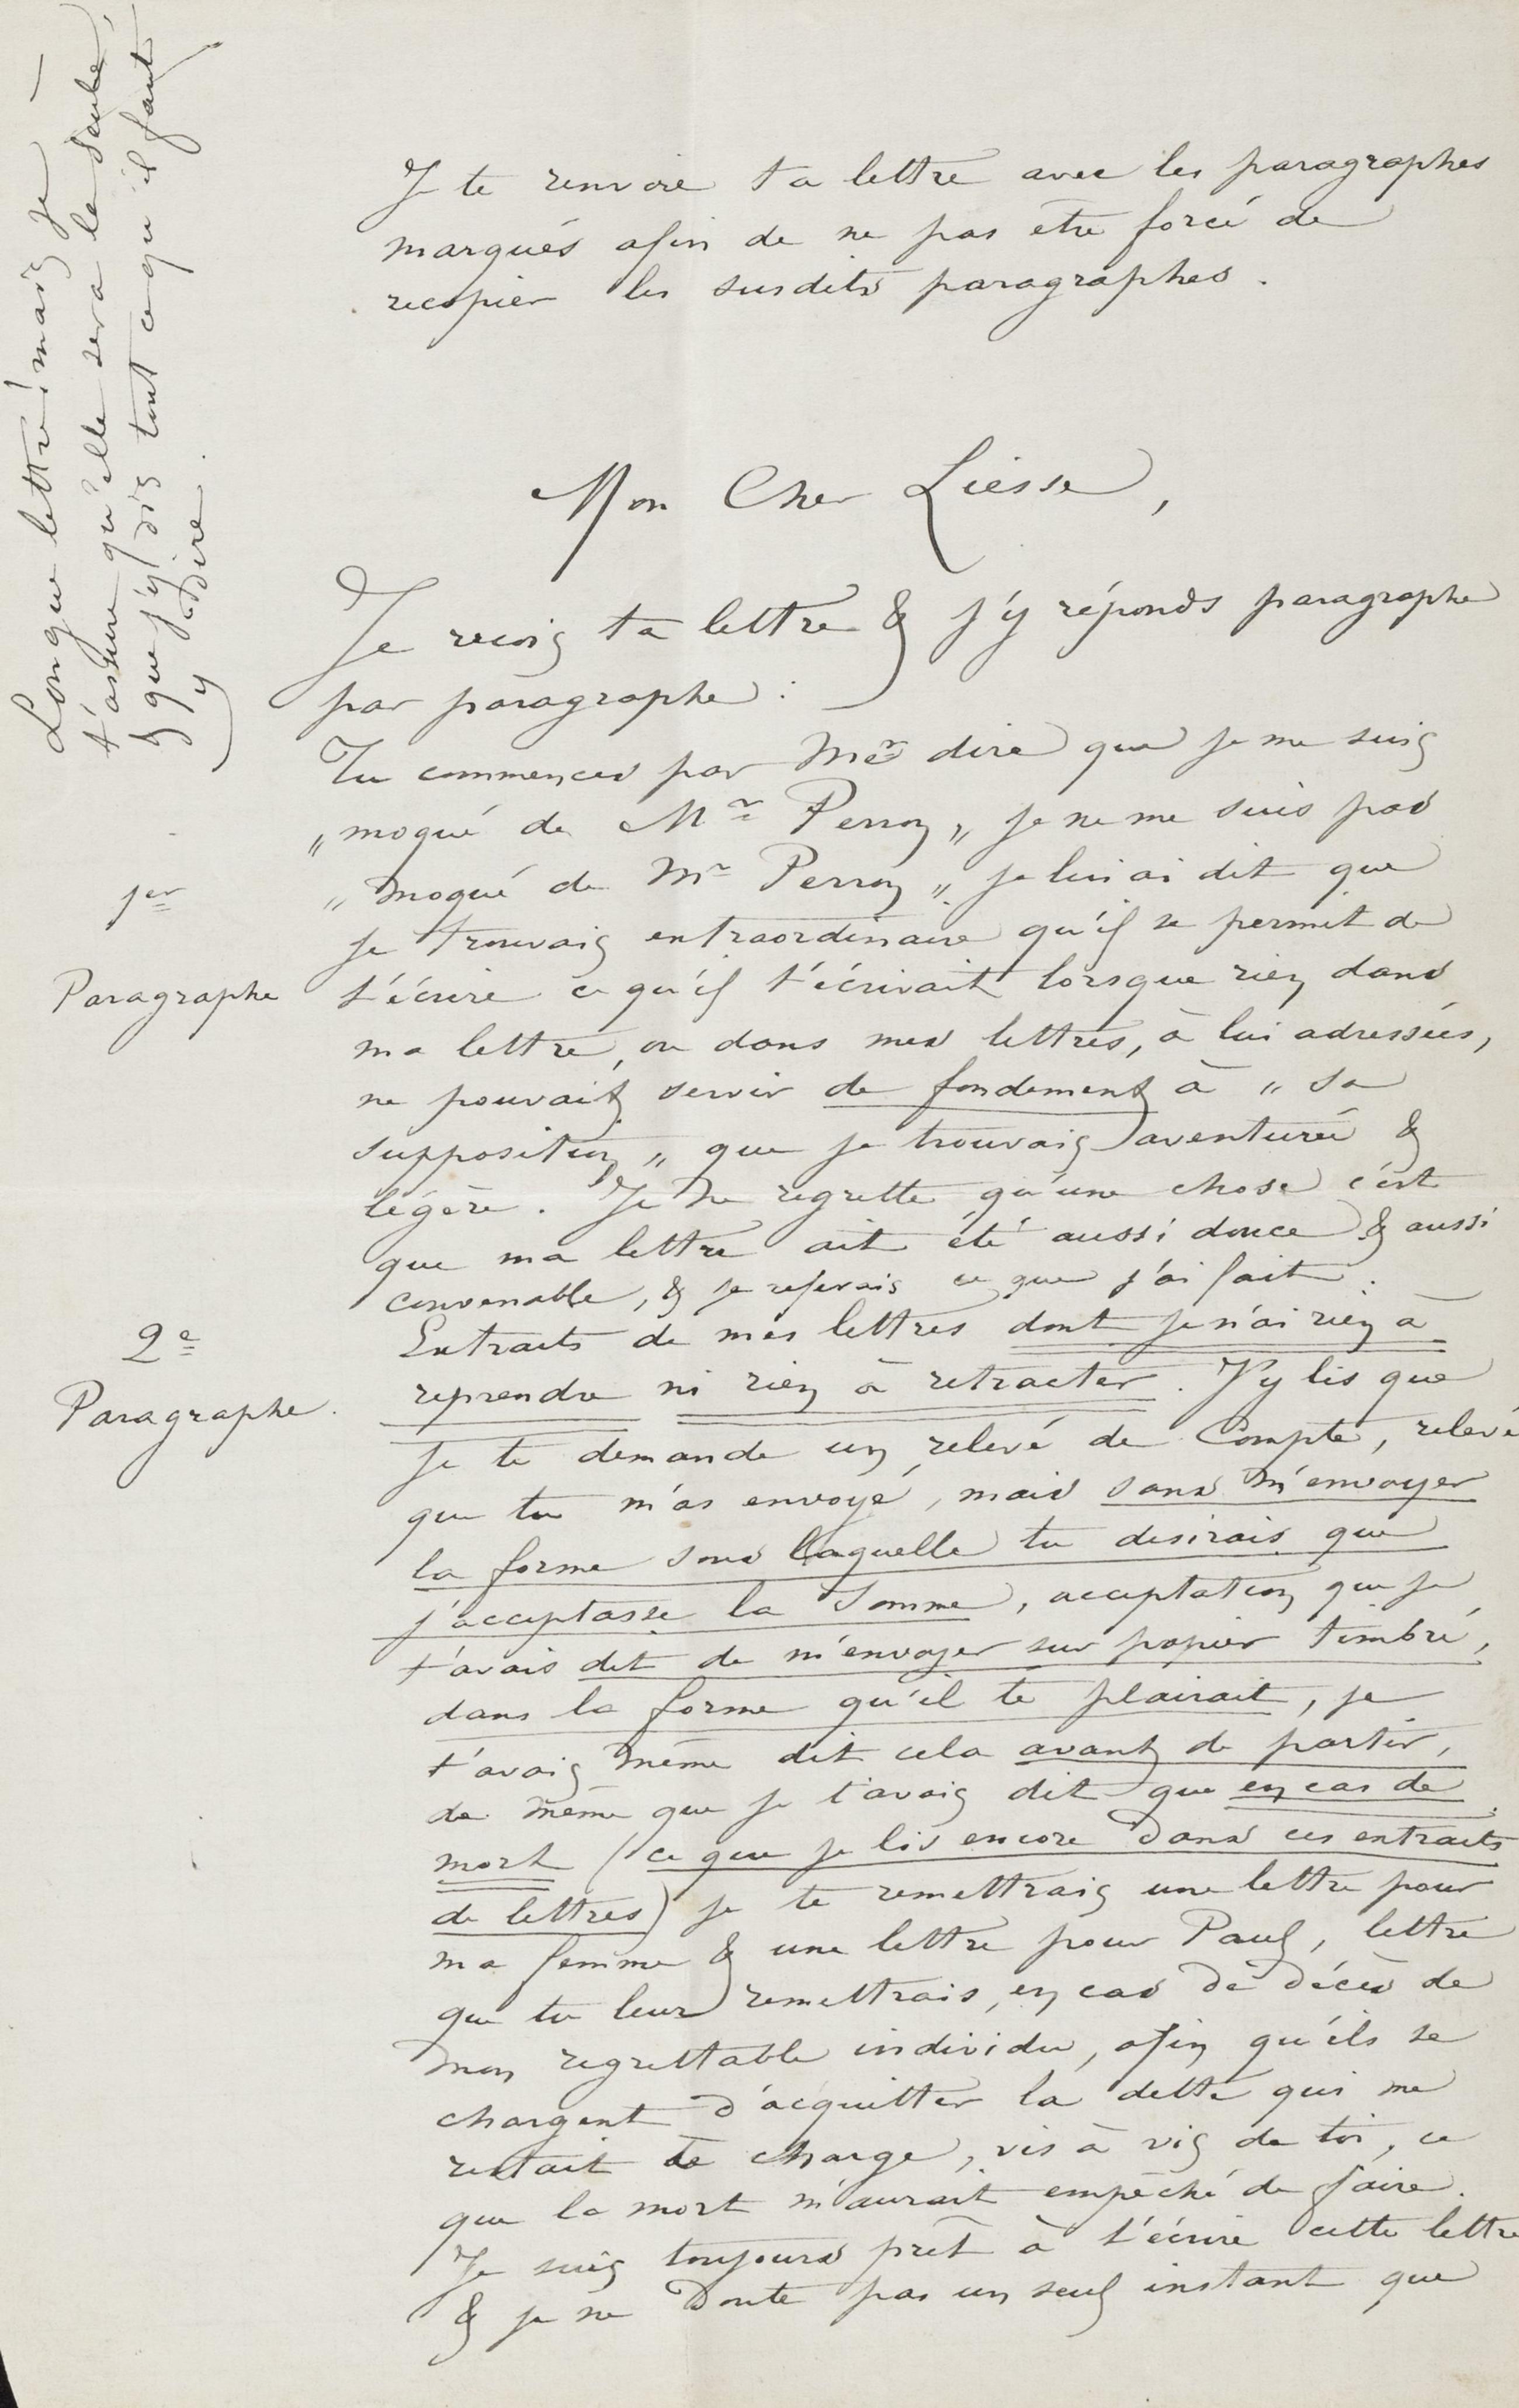 Longue lettre! mais je
t'assure qu'elle sera la seule,
& que j'y dis tout ce qu'il faut
y dire.
Je te renvoie ta lettre avec les paragraphes
marqués afin de ne pas être forcé de
recopier les susdits paragraphes.
Mon Cher Liesse,
Je reçois ta lettre & j'y réponds paragraphe
par paragraphe :
Tu commences par me dire que je me suis
„ moqué de Mr Perron „ je ne me suis pas
1er
„ moqué de Mr Perron „ je lui ai dit que
je trouvais extraordinaire qu'il se permit de
Paragraphe
t'écrire ce qu'il t'écrivait lorsque rien dans
ma lettre, ou dans mes lettres, à lui adressées,
ne pouvait servir de fondement à „ sa
supposition „ que je trouvais aventurée &
légère. Je ne regrette qu'une chose c'est
que ma lettre ait été aussi douce & aussi
convenable, & je referais ce que j'ai fait.
2e
Paragraphe.
Extraits de mes lettres dont je n'ai rien à
reprendre ni rien à retracter. J'y lis que
je te demande un relevé de Compte, relevé
que tu m'as envoyé, mais sans m'envoyer
la forme sous laquelle tu desirais que
j'acceptasse la Somme, acceptation que je
t'avais dit de m'envoyer sur papier timbré,
dans la forme qu'il te plairait, je
t'avais même dit cela avant de partir,
de même que je t'avais dit que en cas de
mort (ce que je lis encore dans ces extraits
de lettres) je te remettrais une lettre pour
ma femme & une lettre pour Paul, lettre
que tu leur remettrais, en cas de décès de
mon regrettable individu, afin qu'ils se
chargent d'acquitter la dette qui me
restait à charge, vis à vis de toi, ce
que la mort m'aurait empêché de faire.
Je suis toujours prêt à t'écrire cette lettre
& je ne doute pas un seul instant que